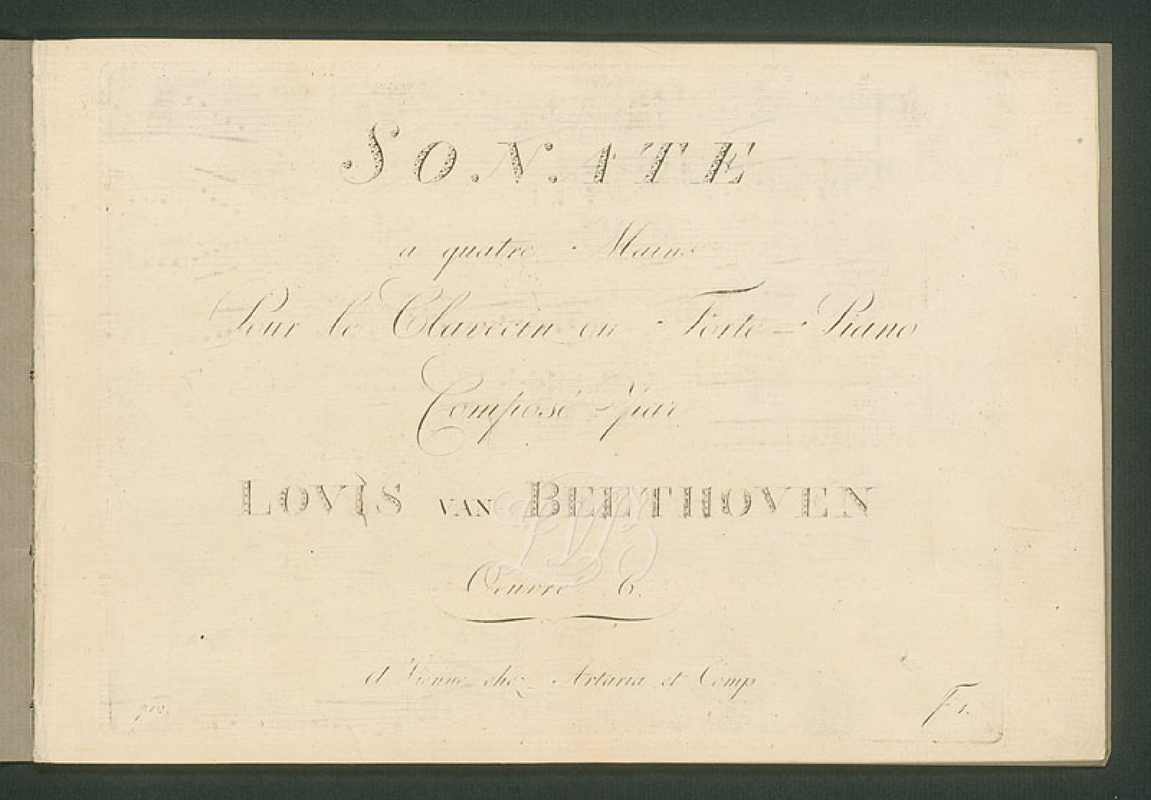 SONATE
a quatre Mains
Pour le Clavecin ou Forte-Piano
Composé par
LOVIS VAN BEETHOVEN
Œuvre 6.
A Vienne chez Artaria et Comp
F 1.